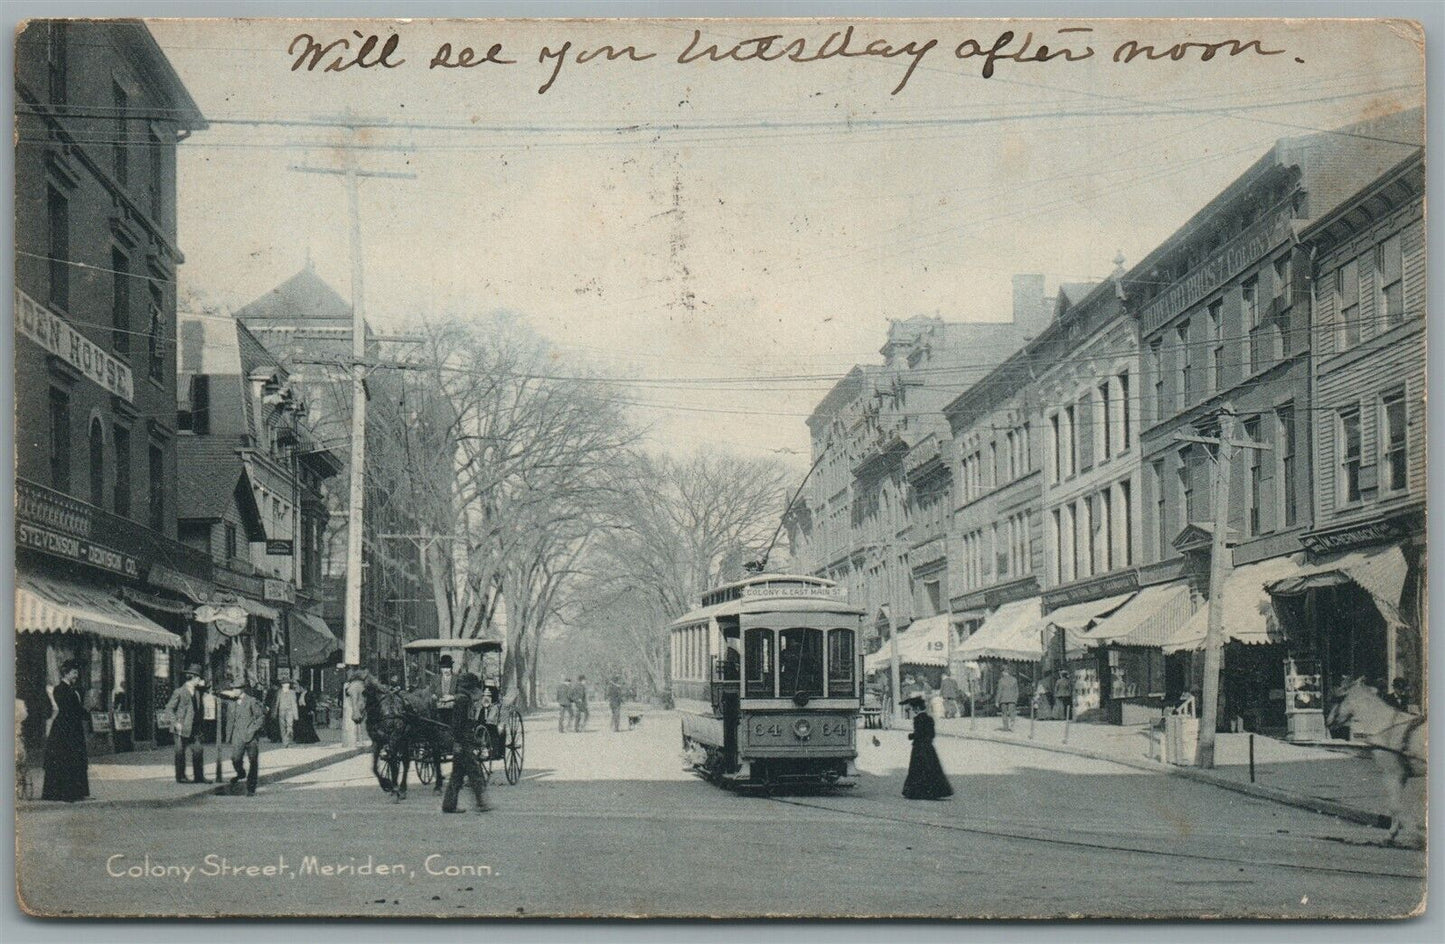 Will see you tuesday after noon.
HOUSE
STEVENSON - DENNISON CO.
COLONY & EAST MAIN ST.
64 64
19
Colony Street, Meriden, Conn.